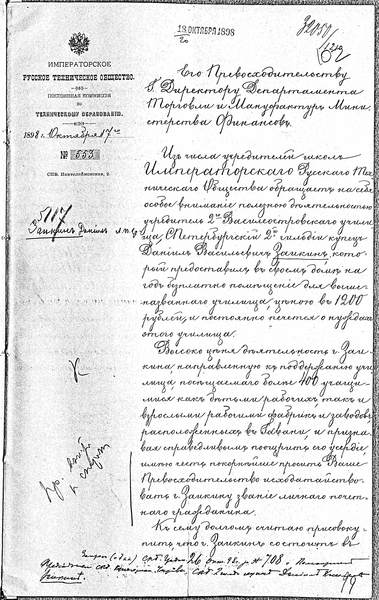 18 ОКТЯБРЯ 1898
ИМПЕРАТОРСКОЕ
РУССКОЕ ТЕХНИЧЕСКОЕ ОБЩЕСТВО.
ПОСТОЯННАЯ КОММИССІЯ
по
ТЕХНИЧЕСКОМУ ОБРАЗОВАНІЮ.
1898 г. Октября 17 дня
№ 553
СПБ. Пантелеймонская, 2.
Его Превосходительству
Г. Директору Департамента
Торговли и Мануфактуръ Мини
стерства Финансовъ.
Изъ числа учредителей школъ
Императорскаго Русскаго Тех
ническаго Общества обращаетъ на себя
особое вниманіе полезною дѣятельностью
учредитель 2го Василеостровскаго учили
ща, С.Петербургскій 2й гильдіи купецъ
Даніилъ Васильевичъ Заикинъ, кото
рый предоставилъ въ своемъ домѣ на
годъ безплатно помѣщеніе для выше
названнаго училища, цѣною въ 1200
рублей, и постоянно печется о нуждахъ
этого училища.
Высоко цѣня дѣятельность г. Заи
кина, направленную къ поддержанію учи
лища, посѣщаемаго болѣе 400 учащи
мися какъ дѣтьми рабочихъ, такъ и
взрослыми рабочими фабрикъ и заводовъ
расположенныхъ въ Гавани, и призна
вая справедливымъ поощрить его усердіе,
имѣю честь покорнѣйше просить Ваше
Превосходительство исходатайство
вать г. Заикину званіе личнаго почет
наго гражданина.
Къ сему долгомъ считаю присовоку
пить что г. Заикинъ состоитъ въ
Заикинъ Даніилъ